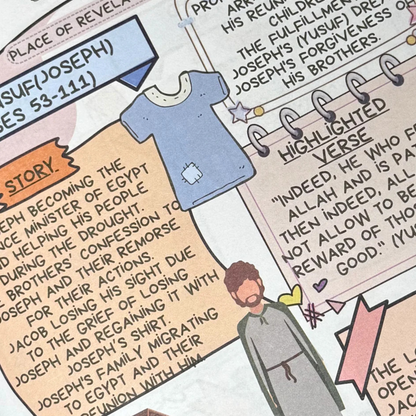 PLACE OF REVELA
USUF (JOSEPH)
GES 53-111)
STORY.
EPH BECOMING THE
NCE MINISTER OF EGYPT
D HELPING HIS PEOPLE
DURING THE DROUGHT.
BROTHERS' CONFESSION TO
JOSEPH AND THEIR REMORSE
FOR THEIR ACTIONS.
JACOB LOSING HIS SIGHT DUE
TO THE GRIEF OF LOSING
JOSEPH AND REGAINING IT WITH
JOSEPH'S SHIRT.
JOSEPH'S FAMILY MIGRATING
TO EGYPT AND THEIR
REUNION WITH HIM
HIS REUN
CHILDRE
THE FULFILLMENT O
JOSEPH'S (YUSUF) DREA
JOSEPH'S FORGIVENESS O
HIS BROTHERS.
HIGHLIGHTED
VERSE
"INDEED, HE WHO FE
ALLAH AND IS PAT
THEN INDEED, ALL
NOT ALLOW TO BE
REWARD OF THO
GOOD." (YU
THE L
OPEN
JAC